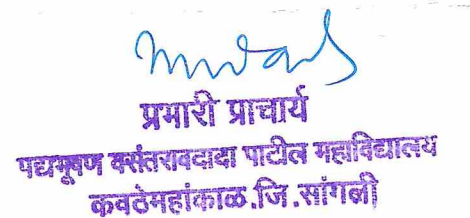 प्रभारी प्राचार्य
पद्मभूषण वसंतरावदादा पाटील महाविद्यालय
कवठेमहांकाळ.जि.सांगली